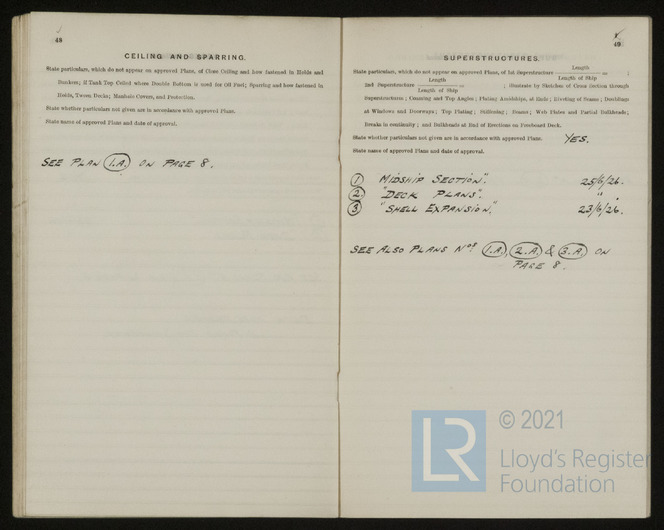 48
CEILING AND SPARRING.
State particulars, which do not appear on approved Plans, of Close Ceiling and how fastened in Holds and
Bunkers; if Tank Top Ceiled where Double Bottom is used for Oil Fuel; Sparring and how fastened in
Holds, Tween Decks; Manhole Covers, and Protection.
State whether particulars not given are in accordance with approved Plans.
State name of approved Plans and date of approval.
SEE PLAN 1.A. ON PAGE 8.
49
SUPERSTRUCTURES.
State particulars, which do not appear on approved Plans, of 1st Superstructure Length / Length of Ship = ;
2nd Superstructure Length / Length of Ship = ; illustrate by Sketches of Cross Section through
Superstructures; Coaming and Top Angles; Plating Amidships, at Ends; Riveting of Seams; Doublings
at Windows and Doorways; Top Plating; Stiffening; Beams; Web Plates and Partial Bulkheads;
Breaks in continuity; and Bulkheads at End of Erections on Freeboard Deck.
State whether particulars not given are in accordance with approved Plans. YES.
State name of approved Plans and date of approval.
1 MIDSHIP SECTION". 25/6/26.
2 "DECK PLANS". " .
3 "SHELL EXPANSION". 23/6/26.
SEE ALSO PLANS Nos 1.A., 2.A. & 3.A. ON
PAGE 8.
LR
© 2021
Lloyd's Register
Foundation